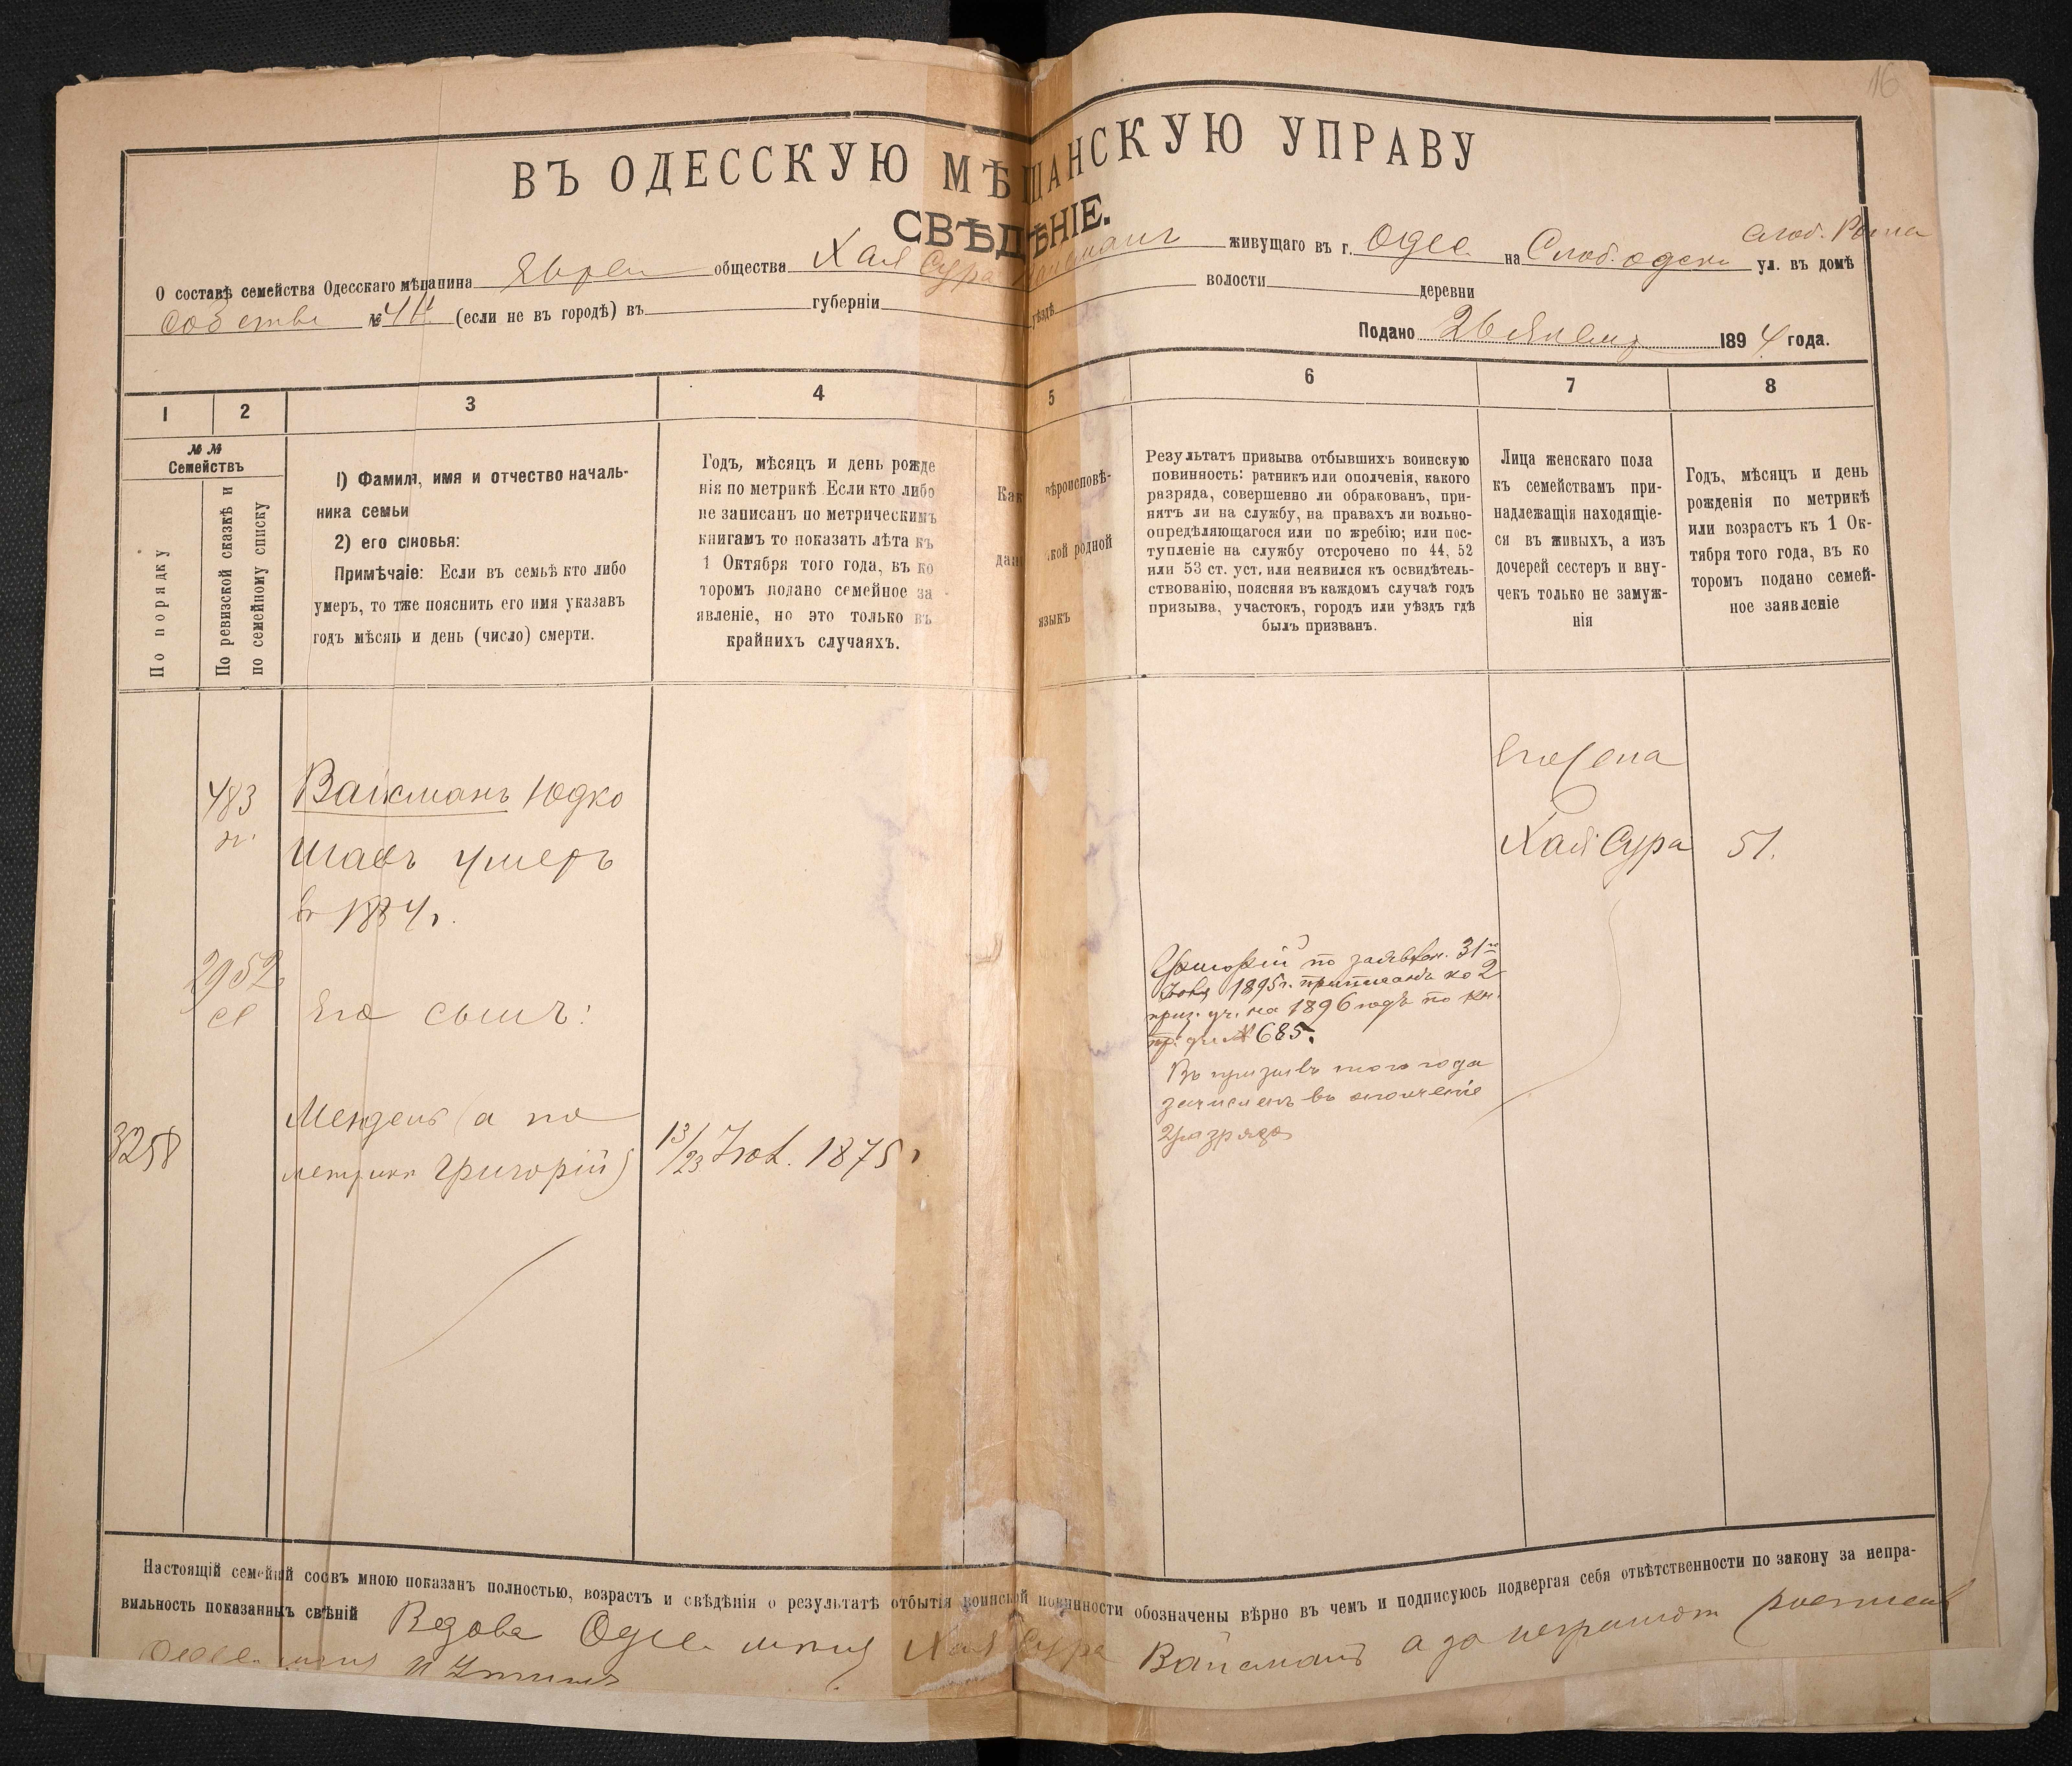 16
ВЪ ОДЕССКУЮ МѢЩАНСКУЮ УПРАВУ
СВѢДѢНІЕ.
слоб. Рома
О составѣ семейства Одесскаго мѣщанина Еврея общества Хая Сура Вайсманъ живущаго въ г. Одес. на Слоб. одеск ул. въ домѣ
Собстве № 44 (если не въ городѣ) въ губерніи уѣздѣ волости деревни
Подано 26 Января 1894 года.
1 2 3 4 5 6 7 8
№ №
Семействъ
По порядку
По ревизской сказкѣ и
по семейному списку
1) Фамилія, имя и отчество началь-
ника семьи
2) его сыновья:
Примѣчаніе: Если въ семьѣ кто либо
умеръ, то тже пояснить его имя указавъ
годъ мѣсяцъ и день (число) смерти.
Годъ, мѣсяцъ и день рожде
нія по метрикѣ. Если кто либо
не записанъ по метрическимъ
книгамъ то показать лѣта къ
1 Октября того года, въ ко
торомъ подано семейное за
явленіе, но это только въ
крайнихъ случаяхъ.
Как вѣроисповѣ-
дан кой родной
языкъ
Результатъ призыва отбывшихъ воинскую
повинность: ратникъ или ополченія, какого
разряда, совершенно ли обракованъ, при-
нятъ ли на службу, на правахъ ли вольно-
опредѣляющагося или по жребію; или пос-
тупленіе на службу отсрочено по 44, 52
или 53 ст. уст. или неявился къ освидѣтель-
ствованію, поясняя въ каждомъ случаѣ годъ
призыва, участокъ, городъ или уѣздъ гдѣ
былъ призванъ.
Лица женскаго пола
къ семействамъ при-
надлежащія находящіе-
ся въ живыхъ, а изъ
дочерей сестеръ и вну-
чекъ только не замуж-
нія
Годъ, мѣсяцъ и день
рожденія по метрикѣ
или возрастъ къ 1 Ок-
тября того года, въ ко
торомъ подано семей-
ное заявленіе
483
Вайсманъ Юдко
умеръ
в 1884 г.
2952
сл
Его сынъ:
3258
Мендель (а по
метрики Григорій)
13/23 Нов. 1875 г
Григорій по заявлен. 31го
1895 г. приписанъ ко 2
приз. уч. на 1896 годъ по кн.
пр. уч. № 685.
Въ призывъ того года
зачисленъ въ ополченіе
2 разряда
его жена
Хая Сура
51.
Настоящій семейній соовъ мною показанъ полностью, возрастъ и свѣдѣнія о результатѣ отбытія воинской повинности обозначены вѣрно въ чемъ и подписуюсь подвергая себя отвѣтственности по закону за непра-
вильность показанныхъ свѣній Вдова Одес. мѣщ Хая Сура Вайсманъ а за неграмот росписался
Одес.